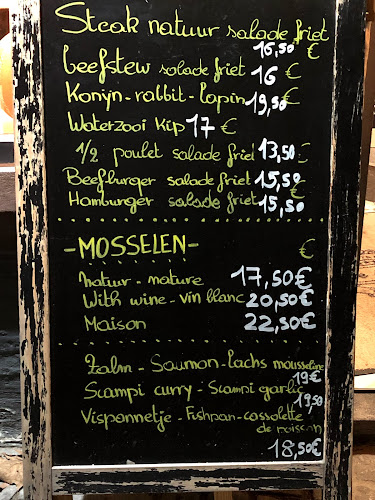 Steak natuur salade friet
16,50 €
beefstew salade friet 16 €
Konijn-rabbit-lapin 19,50 €
Waterzooi Kip 17 €
1/2 poulet salade friet 13,50 €
Beef-burger salade friet 15,50 €
Hamburger salade friet 15,50
-MOSSELEN- €
natuur-nature 17,50€
With wine-vin blanc 20,50€
Maison 22,50€
Zalm-Saumon-Lachs mousseline
19€
Scampi curry-Scampi garlic
19,50
Vispannetje-Fishpan-cassolette
de poisson
18,50€